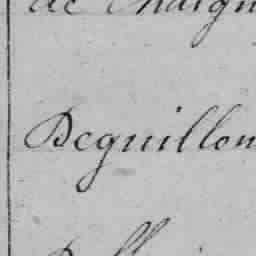 de Chargn
Deguillon